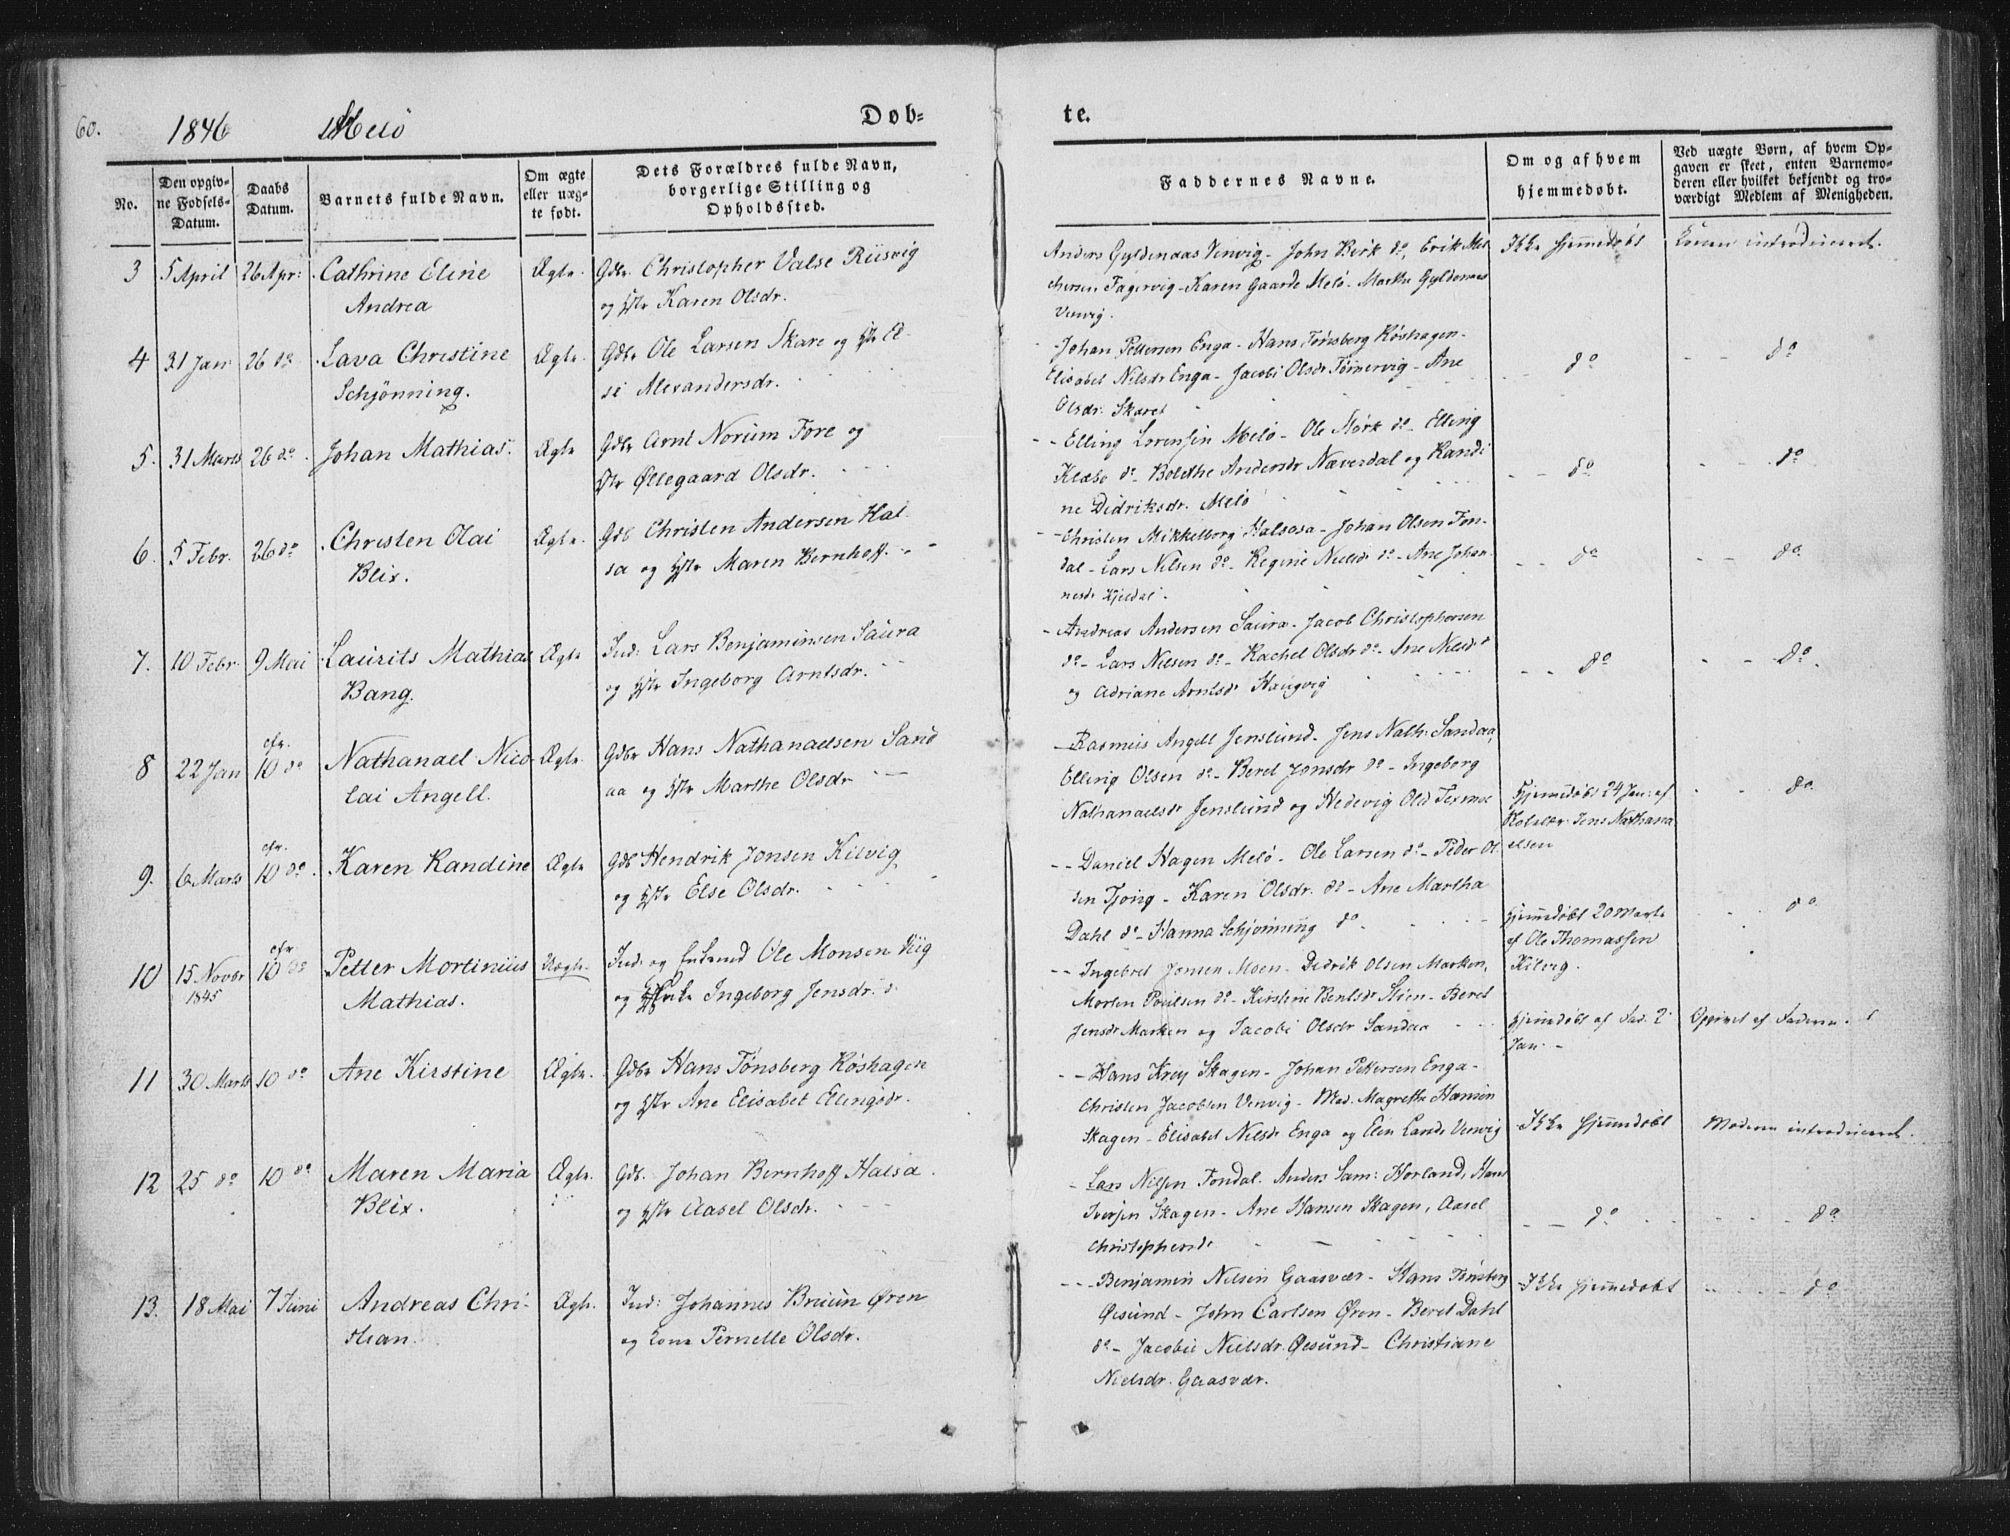 60.
1846 Melö
Døb-
te.
No.
Den opgiv-
ne Fødsels-
Datum.
Daabs
Datum.
Barnets fulde Navn.
Om ægte
eller uæg-
te født.
Dets Forældres fulde Navn,
borgerlige Stilling og
Opholdssted.
Faddernes Navne.
Om og af hvem
hjemmedøbt.
Ved uægte Børn, af hvem Op-
gaven er skeet, enten Barnemo-
deren eller hvilket bekjendt og tro-
værdigt Medlem af Menigheden.
3 5 April 26 Apr: Cathrine Eline
Andrea
Ægte.
Gdbr. Christopher Valse Riisvig
og Hstr Karen Olsdr.
Anders Gyldenaas Venvig - John Berk do, Erik Mel
chersen Fagervig - Karen Gaarde Melö - Marthe Gyldenaas
Venvig.
Ikke hjemmedøbt
Konen introduceret.
4 31 Jan 26 do Lava Christine
Schjønning.
Ægte.
Gdbr Ole Larsen Skare og Hstr El-
si Alexandersdr.
Johan Pettersen Enga - Hans Tønsberg Röshagen -
Elisabet Nilsdr Enga - Jacobi Olsdr Tømmervig - Ane
Olsdr. Skaret
do
do
5. 31 Marts 26 do. Johan Mathias.
Ægte
Gdbr Arnt Norum Fore og
Hstr Øllegaard Olsdr.
Elling Lorensen Melö - Ole Mörk do - Elling
Klæbo do - Bolethe Andersdr Næverdal og Randi
ne Didriksdr. Melö
do
do
6. 5 Febr. 26 do Christen Olai
Blix.
Ægte.
Gdb Christen Andersen Hal-
sa og Hstr Maren Bernhoff.
Christen Mikkelborg Halsosa - Johan Olsen Fon-
dal - Lars Nilsen do - Regine Nielsdr do - Ane Johan-
nesdr Kjeldal.
do
do
7. 10 Febr. 9 Mai Laurits Mathias
Bang.
Ægte
Ind: Lars Benjaminsen Saura
og Hstr Ingeborg Arntsdr.
Andreas Andersen Saura - Jacob Christophersen
do - Lars Nilsen do - Rachel Olsdr do - Ane Nielsdr
og Adriane Arntsdr Haugvig
do
do.
8 22 Jan 10 do Nathanael Nico-
lai Angell.
Ægte.
Gdbr Hans Nathanaelsen Sand
aa og Hstr Marthe Olsdr
Rasmus Angell Jenslund - Jens Nath: Sandaa,
Elling Olsen do - Beret Jonsdr do - Ingeborg
Nathanaelsdr Jenslund og Hedevig Olsd Texmoe
Hjemmedøbt 24 Jan: af
Jens Nathana
elsen
do.
9. 6 Marts 10 do. Karen Randine
Ægte
Gdb Hendrik Jonsen Kilvig
og Hstr Else Olsdr.
Daniel Hagen Melö - Ole Larsen do - Peder Ol
sen Tjong - Karen Olsdr. do - Ane Martha
Dahl do - Hanna Schjønning do
Hjemmedøbt 20 Marts
af Ole Thomassen
Kilvig.
do.
10 15 Novbr
1845
10 do Petter Mortinius
Mathias.
Uægte.
Ind: og Enkemd Ole Monsen Viig
og Ingeborg Jensdr.
Ingebret Jonsen Moen - Didrik Olsen Marken,
Morten Poulsen do - Kirstine Bentsdr Støen - Beret
Jensdr Marken og Jacobi Olsdr Sandaa
Hjemmedøbt af Fad. 2
Jan.
Opgivet af Faderen.
11 30 Marts 10 do Ane Kirstine
Ægte.
Gdbr Hans Tønsberg Röshagen
og Hstr Ane Elisabet Ellingsdr.
Hans Krey Skagen - Johan Pettersen Enga -
Christen Jacobsen Venvig - Mad. Magrethe Hansen
Skagen - Elisabet Nielsdr Enga og Elen Lands Venvig
Ikke hjemmedøbt
Moderen introduceret.
12 25 do 10 do Maren Maria
Blix.
Ægte.
Gdb. Johan Bernhoff Halsa
og Hstr Aasel Olsdr.
Lars Nilsen Fondal. Anders Sam: Horland, Hans
Iversen Skagen - Ane Hansen Skagen, Aasel
Christophersdr
do
do
13. 18 Mai 7 Juni Andreas Chri-
stian.
Ægte.
Ind: Johannes Bruun Øren
og Kone Pernelle Olsdr.
Benjamin Nilsen Gaasvær - Hans Tønsberg
Øesund - John Carlsen Øren - Beret Dahl
do - Jacobie Nielsdr. Øesund - Christiane
Nielsdr. Gaasvær.
Ikke hjemmedøbt
do